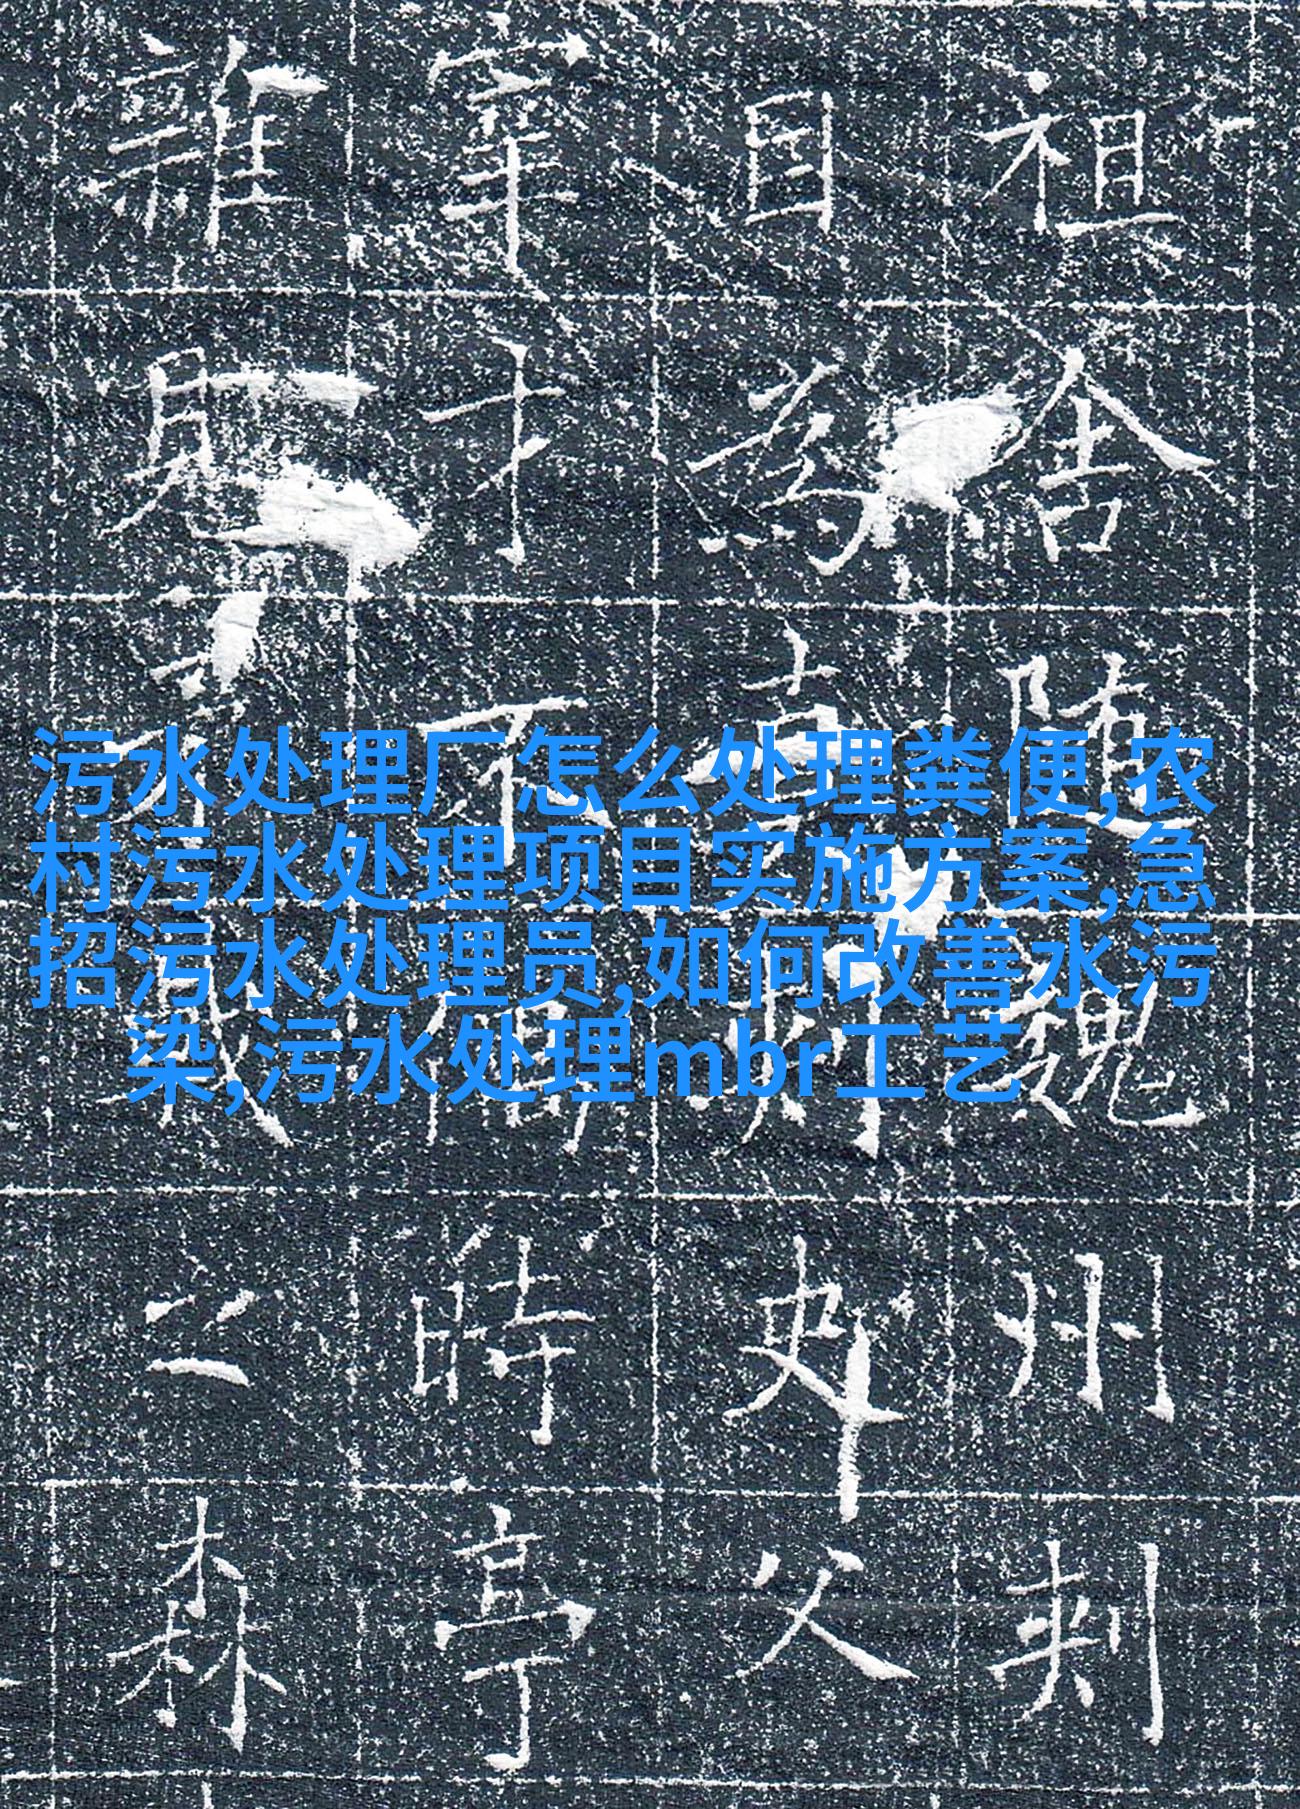 污水处理厂怎么处理粪便,农
村污水处理项目实施方案,急
招污水处理员,如何改善水污
染,污水处理mbr工艺
祖舍随魏州刺
史父
宰才不偶時亭
雖森